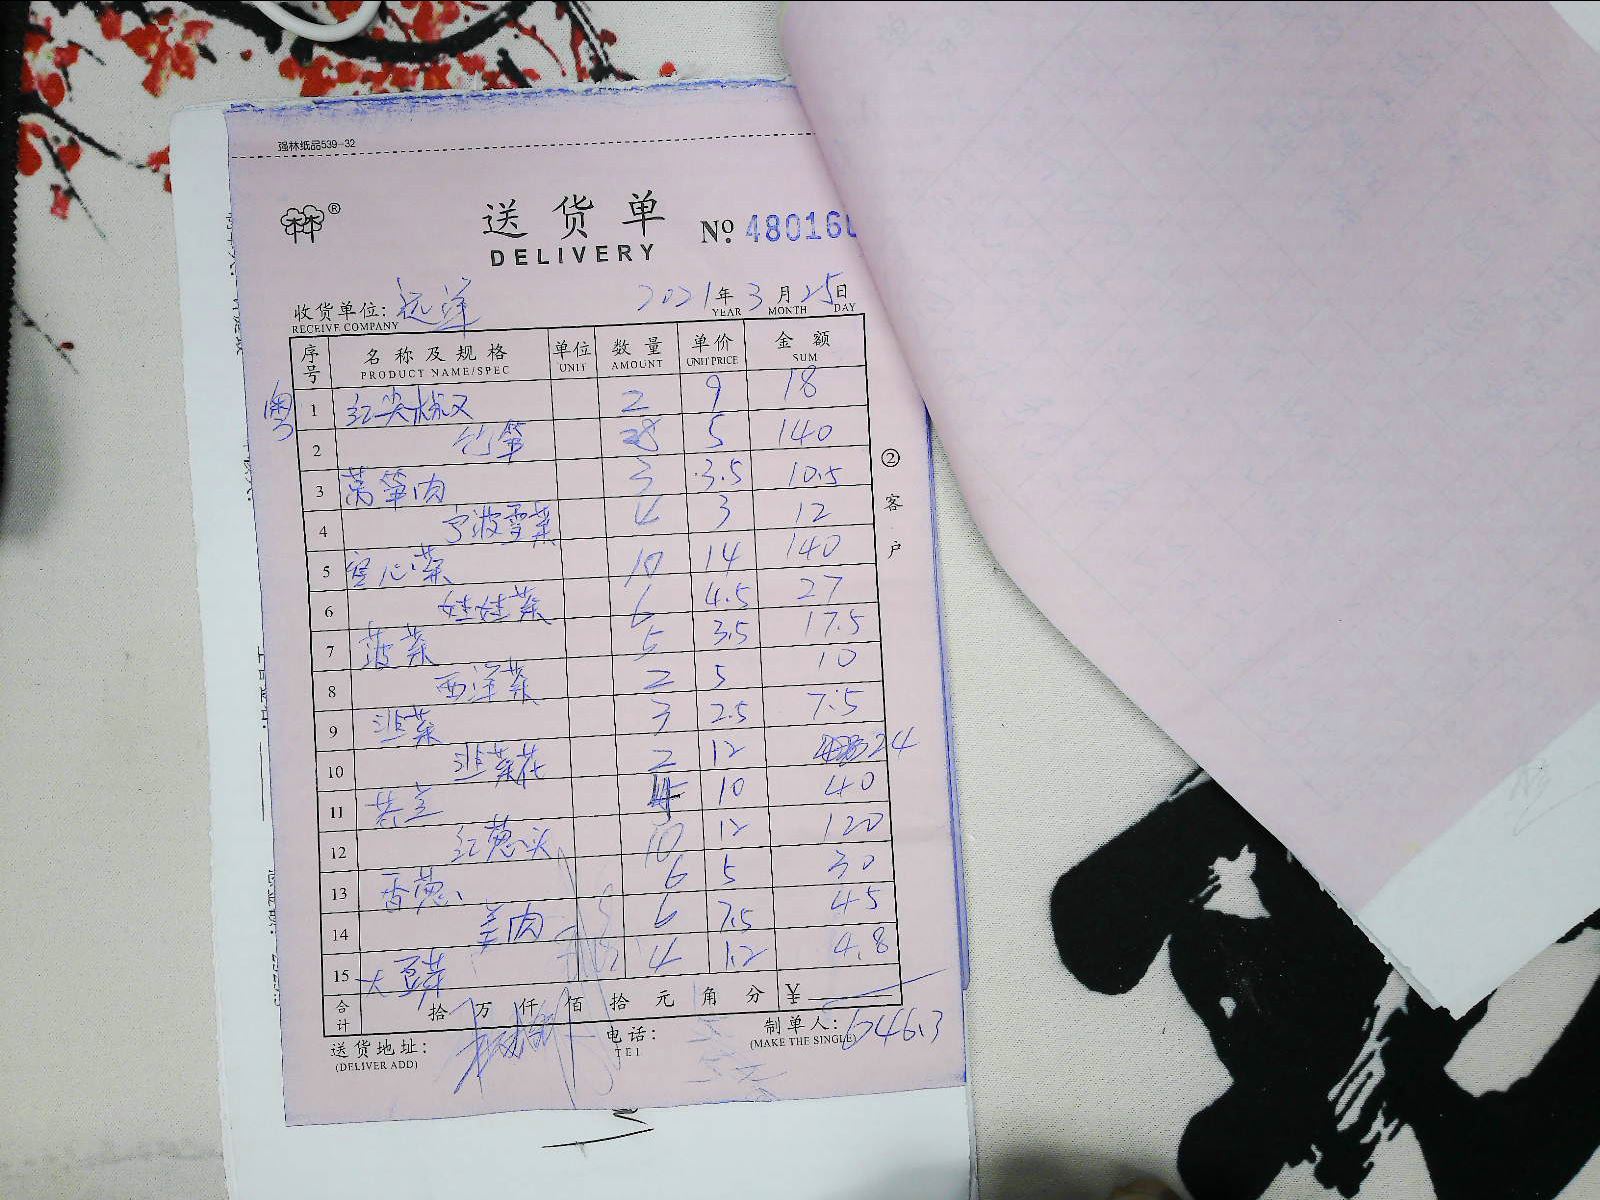 强林纸品539-32
送货单
DELIVERY
№ 48016
收货单位: 远洋 2021年3月25日
RECEIVE COMPANY YEAR MONTH DAY
序号 名称及规格 单位 数量 单价 金额
PRODUCT NAME/SPEC UNIT AMOUNT UNIT PRICE SUM
粤
1 红尖椒 2 9 18
2 竹笋 28 5 140
3 莴笋肉 3 3.5 10.5
4 宁波雪菜 4 3 12
5 空心菜 10 14 140
6 娃娃菜 6 4.5 27
7 菠菜 5 3.5 17.5
8 西洋菜 2 5 10
9 韭菜 3 2.5 7.5
10 韭菜花 2 12 24
11 4 10 40
12 红葱头 10 12 120
13 香葱 6 5 30
14 肉 6 7.5 45
15 大豆芽 4 1.2 4.8
合计 拾 万 仟 佰 拾 元 角 分 ¥
②客户
送货地址: 电话: 制单人: 646.3
(DELIVER ADD) TEL (MAKE THE SINGLE)